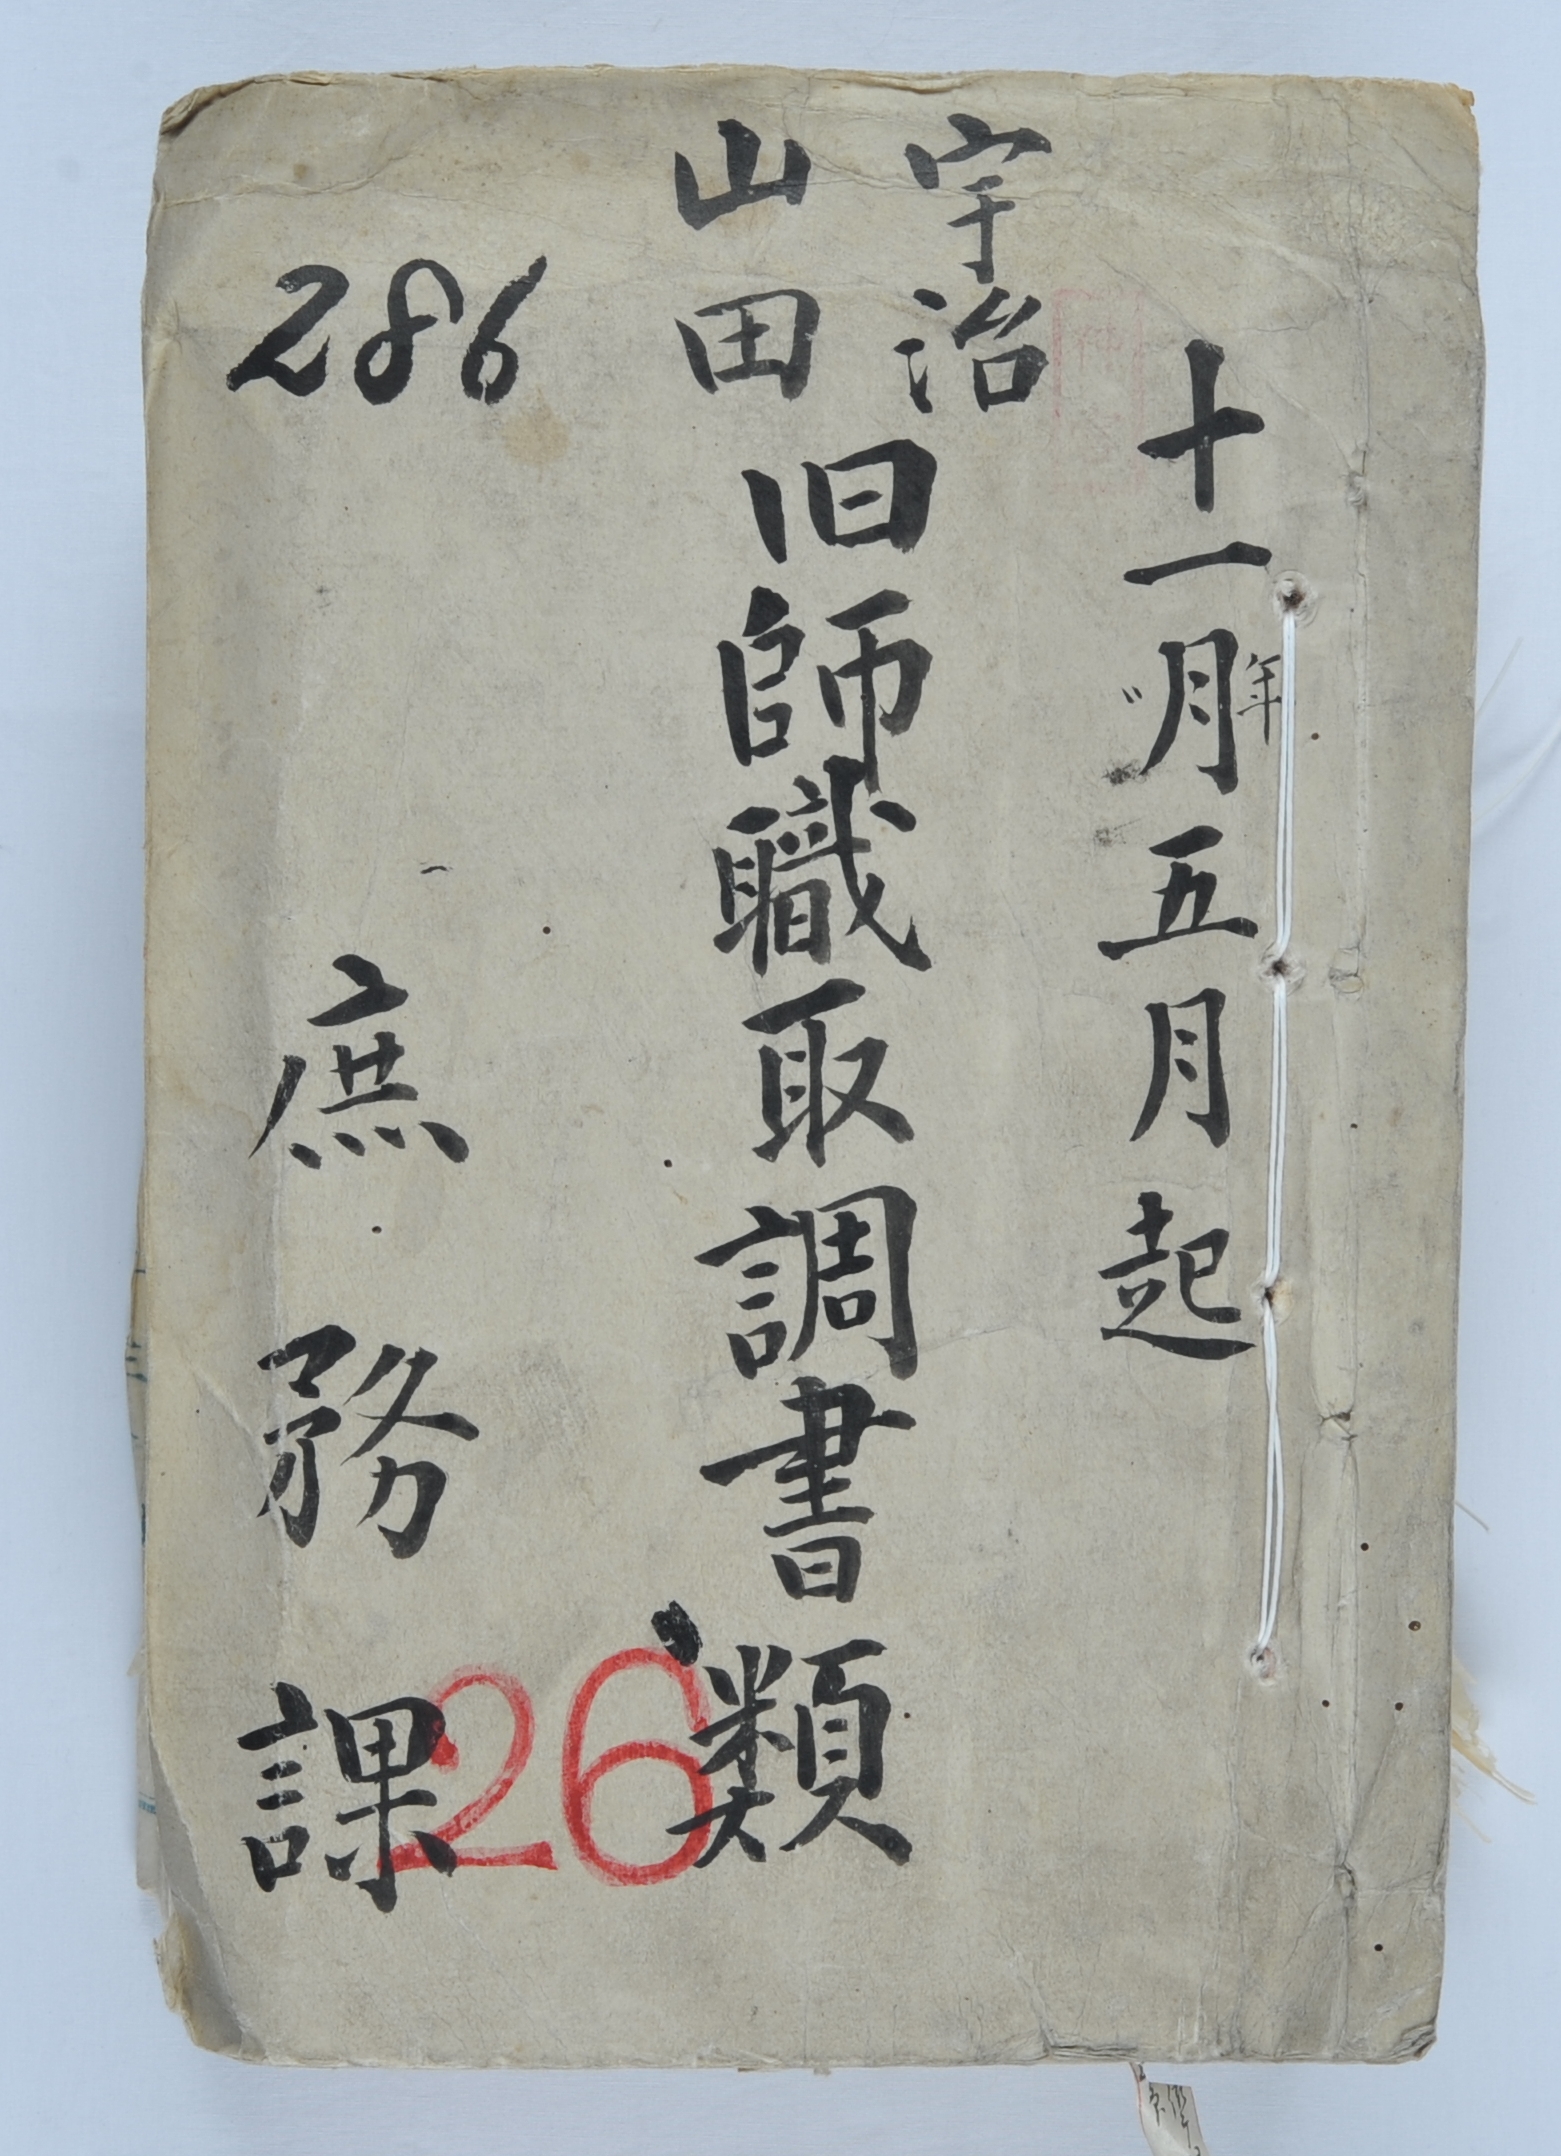 十一月五月起
年
宇治
山田
旧師職取調書類
286
庶務課
26